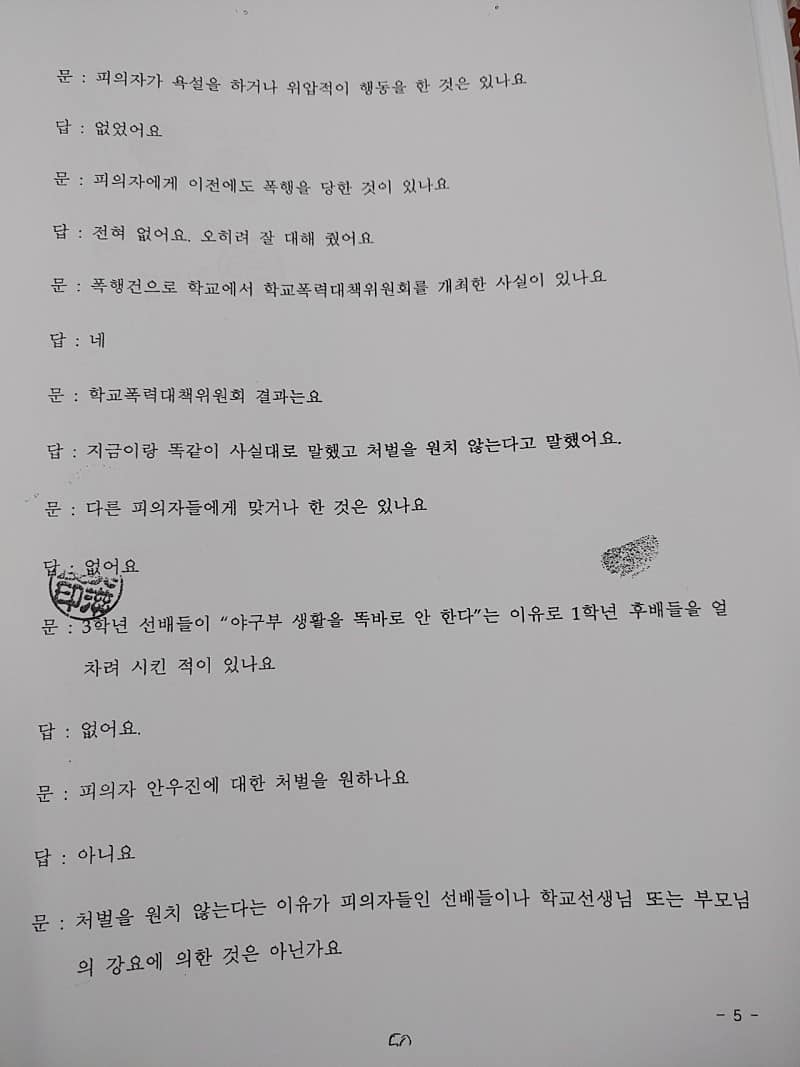 문 : 피의자가 욕설을 하거나 위압적이 행동을 한 것은 있나요
답 : 없었어요
문 : 피의자에게 이전에도 폭행을 당한 것이 있나요
답 : 전혀 없어요. 오히려 잘 대해 줬어요
문 : 폭행건으로 학교에서 학교폭력대책위원회를 개최한 사실이 있나요
답 : 네
문 : 학교폭력대책위원회 결과는요
답 : 지금이랑 똑같이 사실대로 말했고 처벌을 원치 않는다고 말했어요.
문 : 다른 피의자들에게 맞거나 한 것은 있나요
답 : 없어요
문 : 3학년 선배들이 “야구부 생활을 똑바로 안 한다”는 이유로 1학년 후배들을 얼
차려 시킨 적이 있나요
답 : 없어요.
문 : 피의자 안우진에 대한 처벌을 원하나요
답 : 아니요
문 : 처벌을 원치 않는다는 이유가 피의자들인 선배들이나 학교선생님 또는 부모님
의 강요에 의한 것은 아닌가요
- 5 -